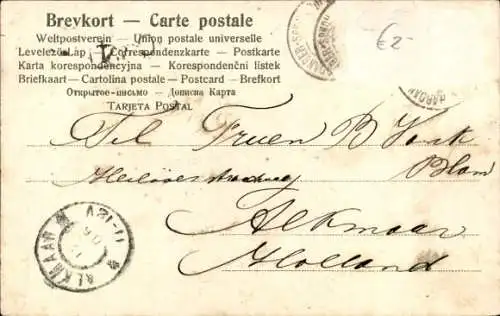 Brevkort — Carte postale
Weltpostverein — Union postale universelle
Levelező Lap — Correspondenzkarte — Postkarte
Karta korespondencyjna — Korespondenční lístek
Briefkaart — Cartolina postale — Postcard — Brefkort
Открытое письмо — Дописна Карта
TARJETA POSTAL
€2-
Til Fruen B Vonk
Blom
Alkmaar
Holland
ALKMAAR